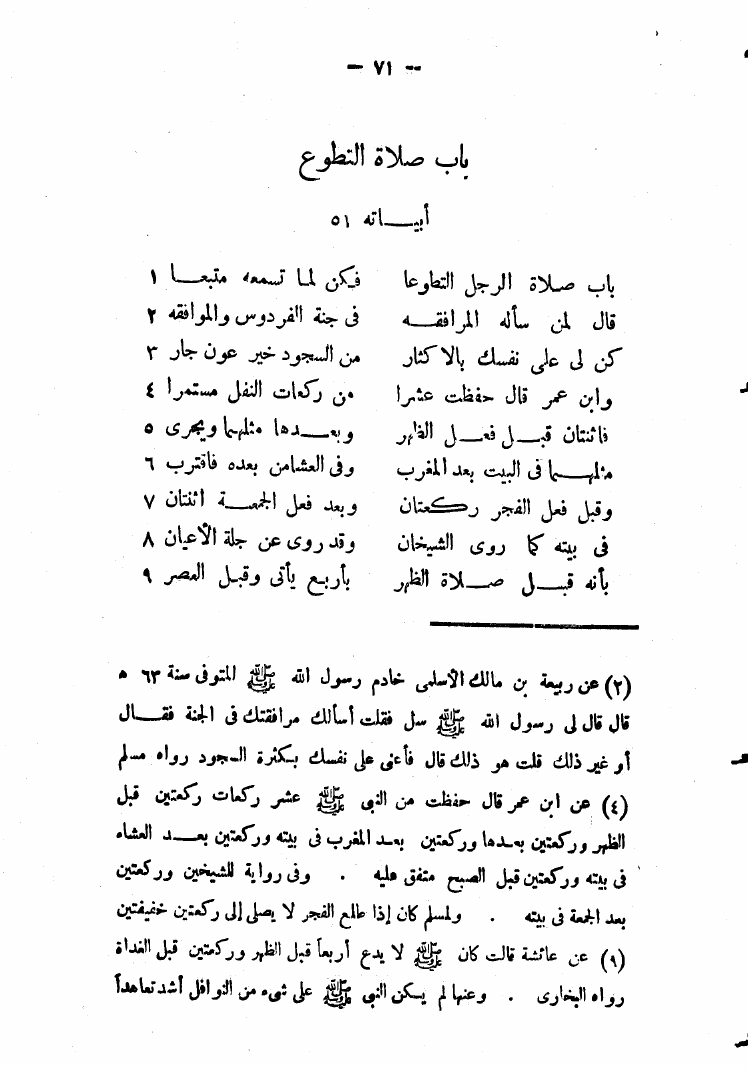 — ٧١ —
باب صلاة التطوع
أبيـــاته ٥١
باب صلاة الرجل التطوعا فكن لما تسمعه متبعـــا ١
قال لمن سأله المرافقـــه فى جنة الفردوس والموافقه ٢
كن لى على نفسك بالاكثار من السجود خير عون جار ٣
وابن عمر قال حفظت عشرا من ركعات النفل مستمرا ٤
فاثنتان قبـــل فعـــل الظهر وبعـــدها مثلهما ويجرى ٥
مثلهـــما فى البيت بعد المغرب وفى العشامن بعده فاقترب ٦
وقبل فعل الفجر ركعتان وبعد فعل الجمعـــة اثنتان ٧
فى بيته كما روى الشيخان وقد روى عن جلة الأعيان ٨
بأنه قبـــل صـــلاة الظهر بأربع يأتى وقبـل العصر ٩
(٢) عن ربيعة بن مالك الأسلمى خادم رسول الله ﷺ المتوفى سنة ٦٣ ه
قال قال لى رسول الله ﷺ سل فقلت أسألك مرافقتك فى الجنة فقـــال
أو غير ذلك قلت هو ذلك قال فأعنى على نفسك بكثرة السجود رواه مسلم
(٤) عن ابن عمر قال حفظت من النبى ﷺ عشر ركعات ركعتين قبل
الظهر وركعتين بعدها وركعتين بعد المغرب فى بيته وركعتين بعـــد العشاء
فى بيته وركعتين قبل الصبح متفق عليه . وفى رواية للشيخين وركعتين
بعد الجمعة فى بيته . ولمسلم كان إذا طلع الفجر لا يصلى إلى ركعتين خفيفتين
(٩) عن عائشة قالت كان ﷺ لا يدع أربعاً قبل الظهر وركعتين قبل الغداة
رواه البخارى . وعنها لم يكن النبى ﷺ على شىء من النوافل أشد تعاهداً